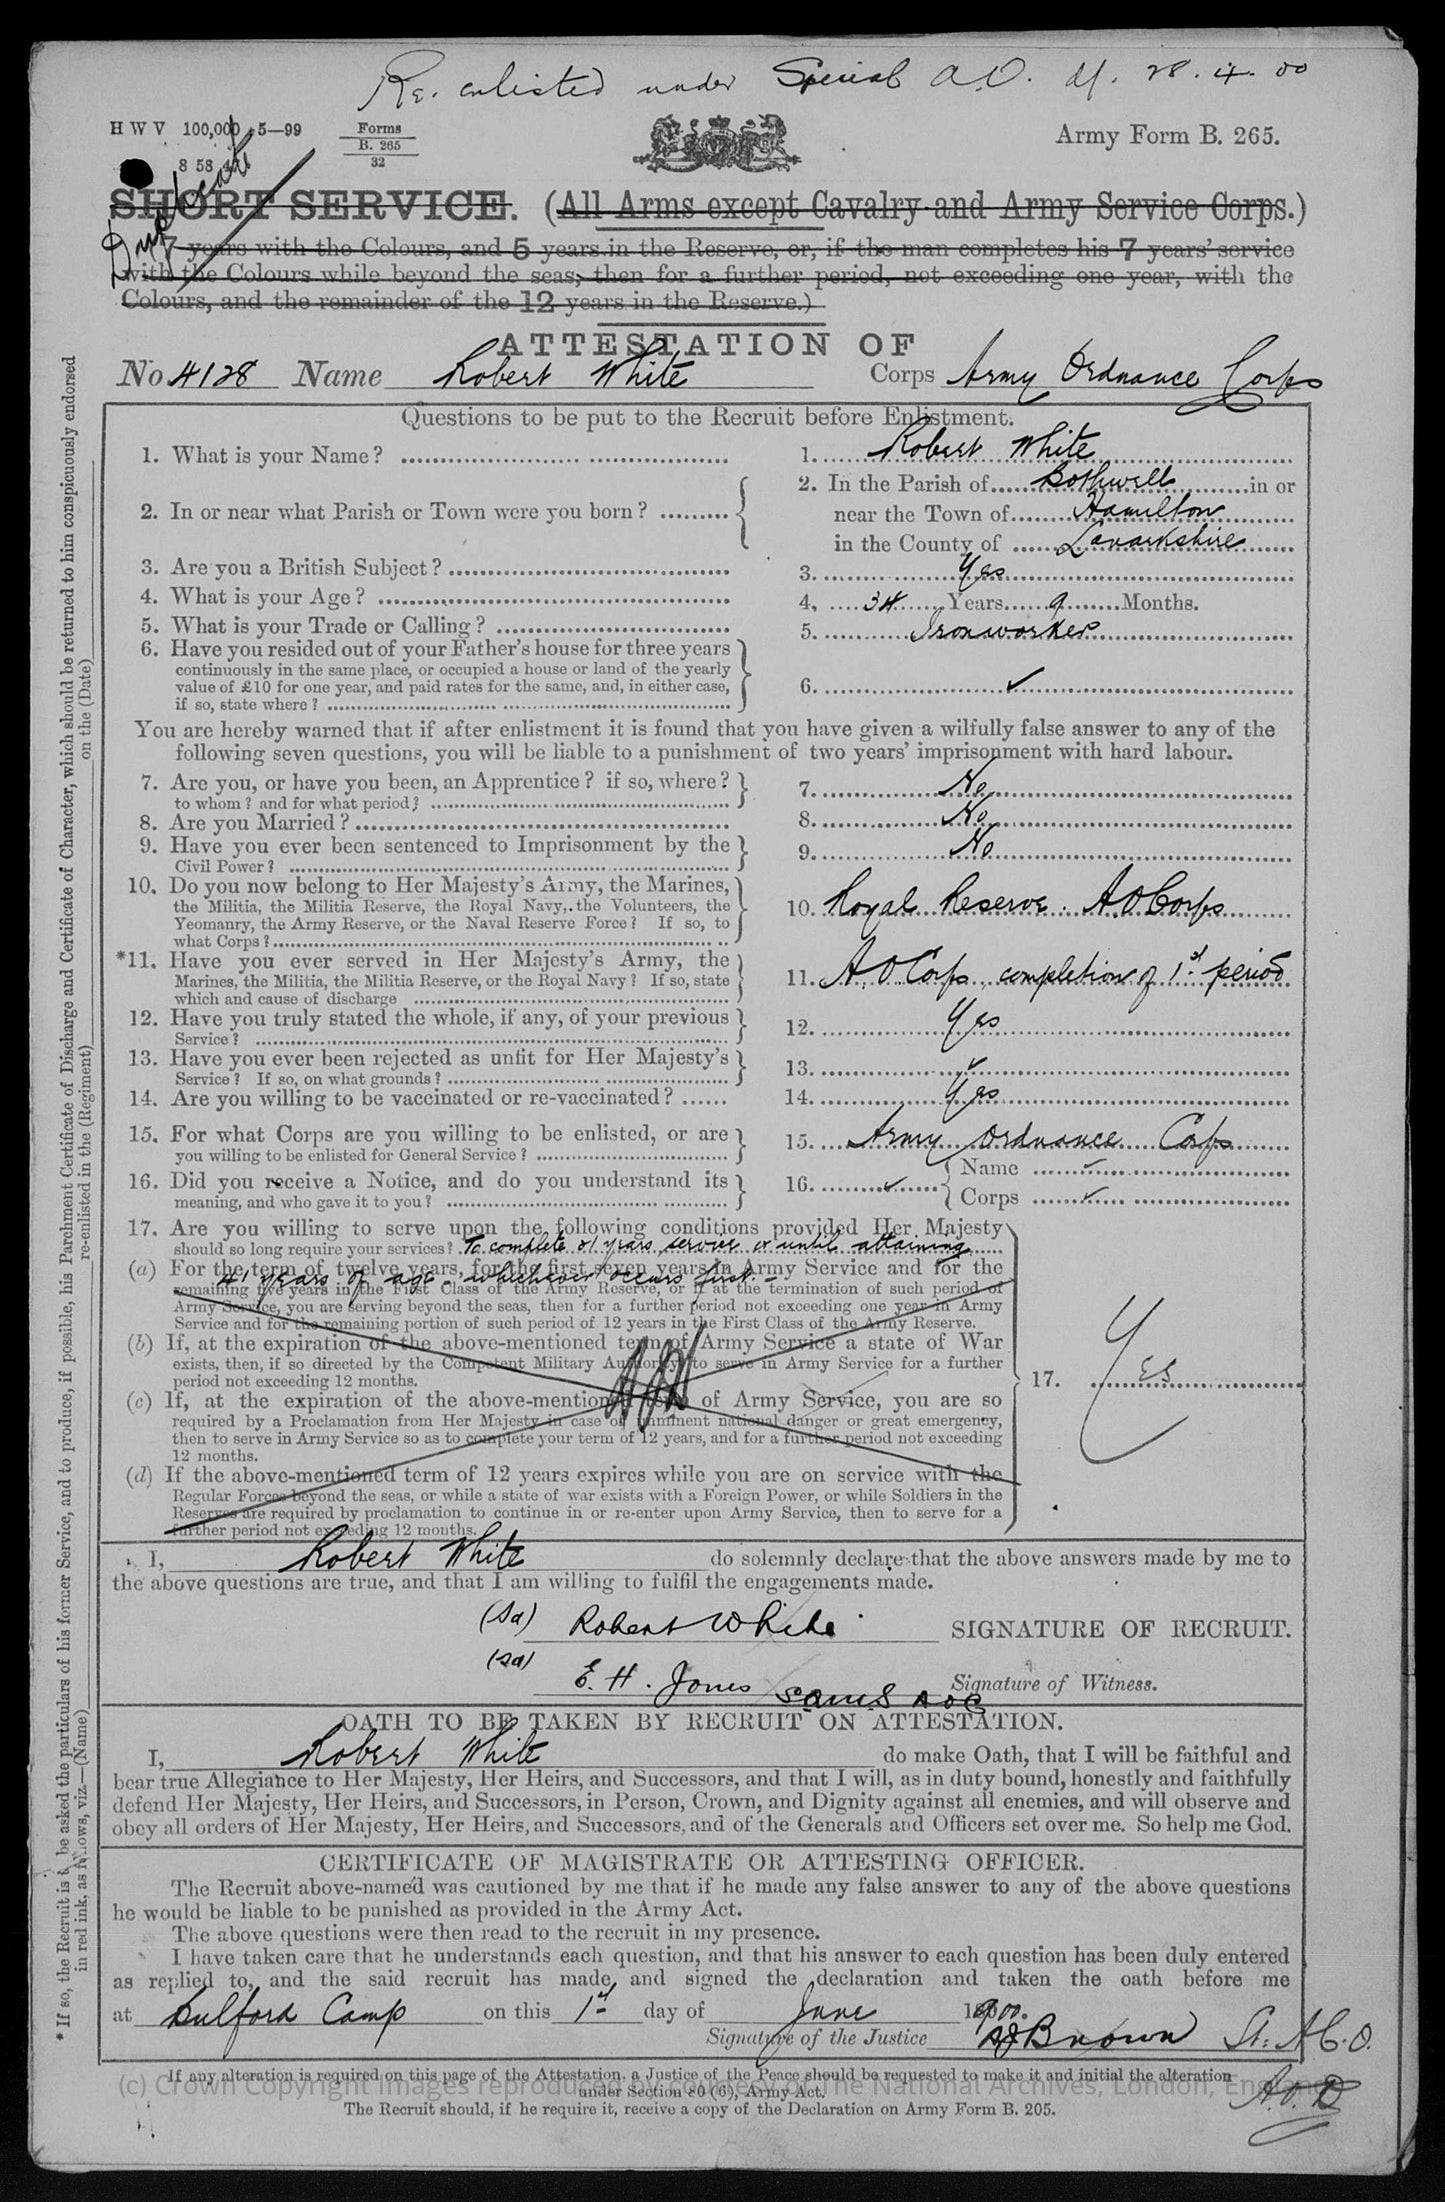 Re. enlisted under Special A.O. of. 28.4.00
H W V 100,000 5—99 Forms B. 265 32 Army Form B. 265.
8 58
Duplicate
SHORT SERVICE. (All Arms except Cavalry and Army Service Corps.)
7 years with the Colours, and 5 years in the Reserve, or, if the man completes his 7 years' service
with the Colours while beyond the seas, then for a further period, not exceeding one year, with the
Colours, and the remainder of the 12 years in the Reserve.)
ATTESTATION OF
No 4128 Name Robert White Corps Army Ordnance Corps
Questions to be put to the Recruit before Enlistment.
1. What is your Name? 1. Robert White
2. In or near what Parish or Town were you born? 2. In the Parish of Bothwell in or
near the Town of Hamilton
in the County of Lanarkshire
3. Are you a British Subject? 3. Yes
4. What is your Age? 4, 34 Years 9 Months.
5. What is your Trade or Calling? 5. Ironworker
6. Have you resided out of your Father's house for three years
continuously in the same place, or occupied a house or land of the yearly
value of £10 for one year, and paid rates for the same, and, in either case,
if so, state where? 6. ✓
You are hereby warned that if after enlistment it is found that you have given a wilfully false answer to any of the
following seven questions, you will be liable to a punishment of two years' imprisonment with hard labour.
7. Are you, or have you been, an Apprentice? if so, where?
to whom? and for what period? 7. No
8. Are you Married? 8. No
9. Have you ever been sentenced to Imprisonment by the
Civil Power? 9. No
10. Do you now belong to Her Majesty's Army, the Marines,
the Militia, the Militia Reserve, the Royal Navy, the Volunteers, the
Yeomanry, the Army Reserve, or the Naval Reserve Force? If so, to
what Corps? 10. Royal Reserve. A.O Corps
*11. Have you ever served in Her Majesty's Army, the
Marines, the Militia, the Militia Reserve, or the Royal Navy? If so, state
which and cause of discharge 11. A.O Corps, completion of 1st period
12. Have you truly stated the whole, if any, of your previous
Service? 12. Yes
13. Have you ever been rejected as unfit for Her Majesty's
Service? If so, on what grounds? 13. ✓
14. Are you willing to be vaccinated or re-vaccinated? 14. Yes
15. For what Corps are you willing to be enlisted, or are
you willing to be enlisted for General Service? 15. Army Ordnance Corps
16. Did you receive a Notice, and do you understand its
meaning, and who gave it to you? 16. ✓ Name ✓
Corps ✓
17. Are you willing to serve upon the following conditions provided Her Majesty
should so long require your services? To complete 21 years service or until attaining
41 years of age - whichever occurs first. -
(a) For the term of twelve years, for the first seven years in Army Service and for the
remaining five years in the First Class of the Army Reserve, or if at the termination of such period of
Army Service, you are serving beyond the seas, then for a further period not exceeding one year in Army
Service and for the remaining portion of such period of 12 years in the First Class of the Army Reserve.
(b) If, at the expiration of the above-mentioned term of Army Service a state of War
exists, then, if so directed by the Competent Military Authority, to serve in Army Service for a further
period not exceeding 12 months.
17. Yes
(c) If, at the expiration of the above-mentioned term of Army Service, you are so
required by a Proclamation from Her Majesty in case of imminent national danger or great emergency,
then to serve in Army Service so as to complete your term of 12 years, and for a further period not exceeding
12 months.
(d) If the above-mentioned term of 12 years expires while you are on service with the
Regular Forces beyond the seas, or while a state of war exists with a Foreign Power, or while Soldiers in the
Reserves are required by proclamation to continue in or re-enter upon Army Service, then to serve for a
further period not exceeding 12 months.
I, Robert White do solemnly declare that the above answers made by me to
the above questions are true, and that I am willing to fulfil the engagements made.
(Sd) Robert White SIGNATURE OF RECRUIT.
(Sd) E. H. Jones Signature of Witness.
AOC
OATH TO BE TAKEN BY RECRUIT ON ATTESTATION.
I, Robert White do make Oath, that I will be faithful and
bear true Allegiance to Her Majesty, Her Heirs, and Successors, and that I will, as in duty bound, honestly and faithfully
defend Her Majesty, Her Heirs, and Successors, in Person, Crown, and Dignity against all enemies, and will observe and
obey all orders of Her Majesty, Her Heirs, and Successors, and of the Generals and Officers set over me. So help me God.
CERTIFICATE OF MAGISTRATE OR ATTESTING OFFICER.
The Recruit above-named was cautioned by me that if he made any false answer to any of the above questions
he would be liable to be punished as provided in the Army Act.
The above questions were then read to the recruit in my presence.
I have taken care that he understands each question, and that his answer to each question has been duly entered
as replied to, and the said recruit has made and signed the declaration and taken the oath before me
at Bulford Camp on this 1st day of June 1900.
Signature of the Justice Brown
A.O.D
If any alteration is required on this page of the Attestation, a Justice of the Peace should be requested to make it and initial the alteration
under Section 80 (6), Army Act.
The Recruit should, if he require it, receive a copy of the Declaration on Army Form B. 205.
(c) Crown Copyright Images reproduced by courtesy of The National Archives, London, England
* If so, the Recruit is to be asked the particulars of his former Service, and to produce, if possible, his Parchment Certificate of Discharge and Certificate of Character, which should be returned to him conspicuously endorsed
in red ink, as follows, viz.—(Name) re-enlisted in the (Regiment) on the (Date)